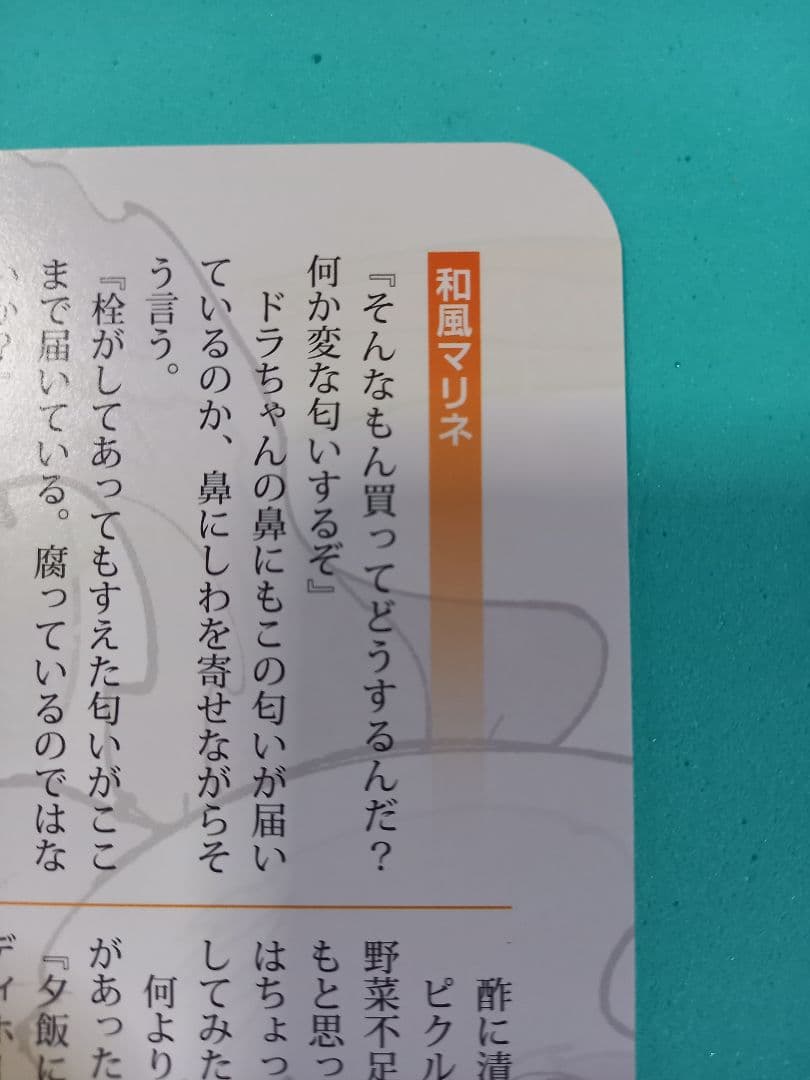 和風マリネ
『そんなもん買ってどうするんだ?
何か変な匂いするぞ』
ドラちゃんの鼻にもこの匂いが届い
ているのか、鼻にしわを寄せながらそ
う言う。
『栓がしてあってもすえた匂いがここ
まで届いている。腐っているのではな
いか?』
酢に漬
ピクル
野菜不足
もと思っ
はちょっ
してみた
何より
があった
『夕飯に
ディホ